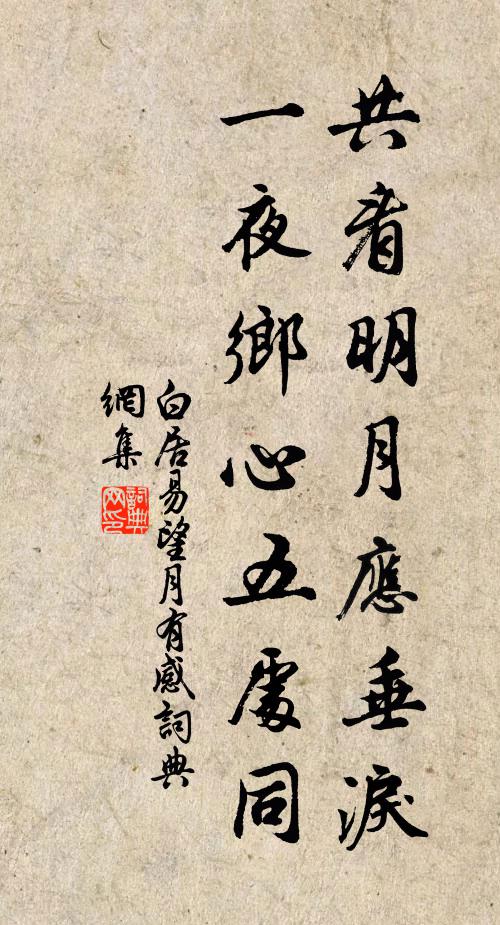 共看明月應垂淚
一夜鄉心五處同
白居易望月有感詞典
網集
詞典网印